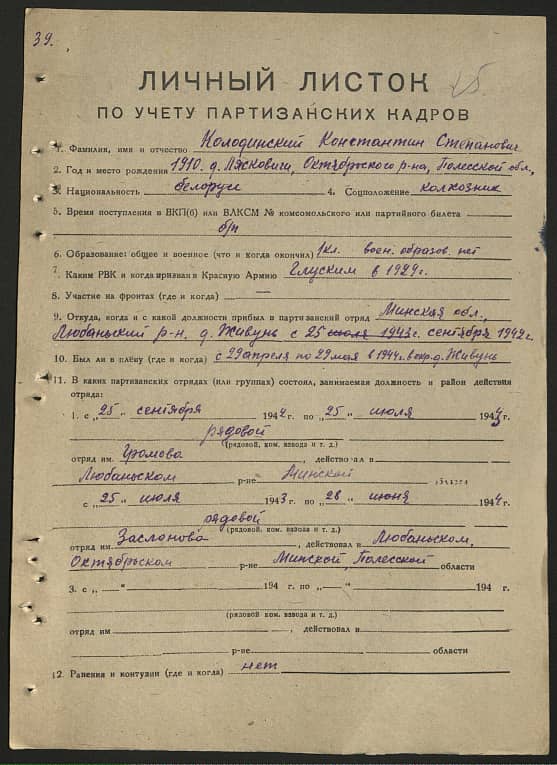 39.
ЛИЧНЫЙ ЛИСТОК
ПО УЧЕТУ ПАРТИЗАНСКИХ КАДРОВ
1. Фамилия, имя и отчество Колодинский Константин Степанович
2. Год и место рождения 1910. д. Лясковичи, Октябрьского р-на, Полесской обл.,
3. Национальность белорус 4. Соцположение колхозник
5. Время поступления в ВКП(б) или ВЛКСМ № комсомольского или партийного билета
б/п
6. Образование: общее и военное (что и когда окончил) 1 кл. воен. образов. нет
7. Каким РВК и когда призван в Красную Армию Глуским в 1929 г.
8. Участие на фронтах (где и когда)
9. Откуда, когда и с какой должности прибыл в партизанский отряд Минская обл.,
Любаньский р-н. д. Живунь с 25 июля 1943 г. сентября 1942 г.
10. Был ли в плену (где и когда) с 29 апреля по 29 мая в 1944 г. в окр. д. Живунь
11. В каких партизанских отрядах (или группах) состоял, занимаемая должность и район действия
отряда:
1. с „25" сентября 1942 г по „25" июля 1943 г.
рядовой
(рядовой, ком. взвода и т. д.)
отряд им. Громова, действовал в
Любаньском р-не Минской
с „25" июля 1943 г. по „28" июня 1944 г.
рядовой
(рядовой, ком. взвода и т. д.)
отряд им Заслонова, действовал в Любаньском,
Октябрьском р-не Минской, Полесской области
3. с „—" 194 г. по „—" 194 г.
(рядовой, ком. взвода и т. д.)
отряд им , действовал в
р-не области
12. Ранения и контузии (где и когда) нет